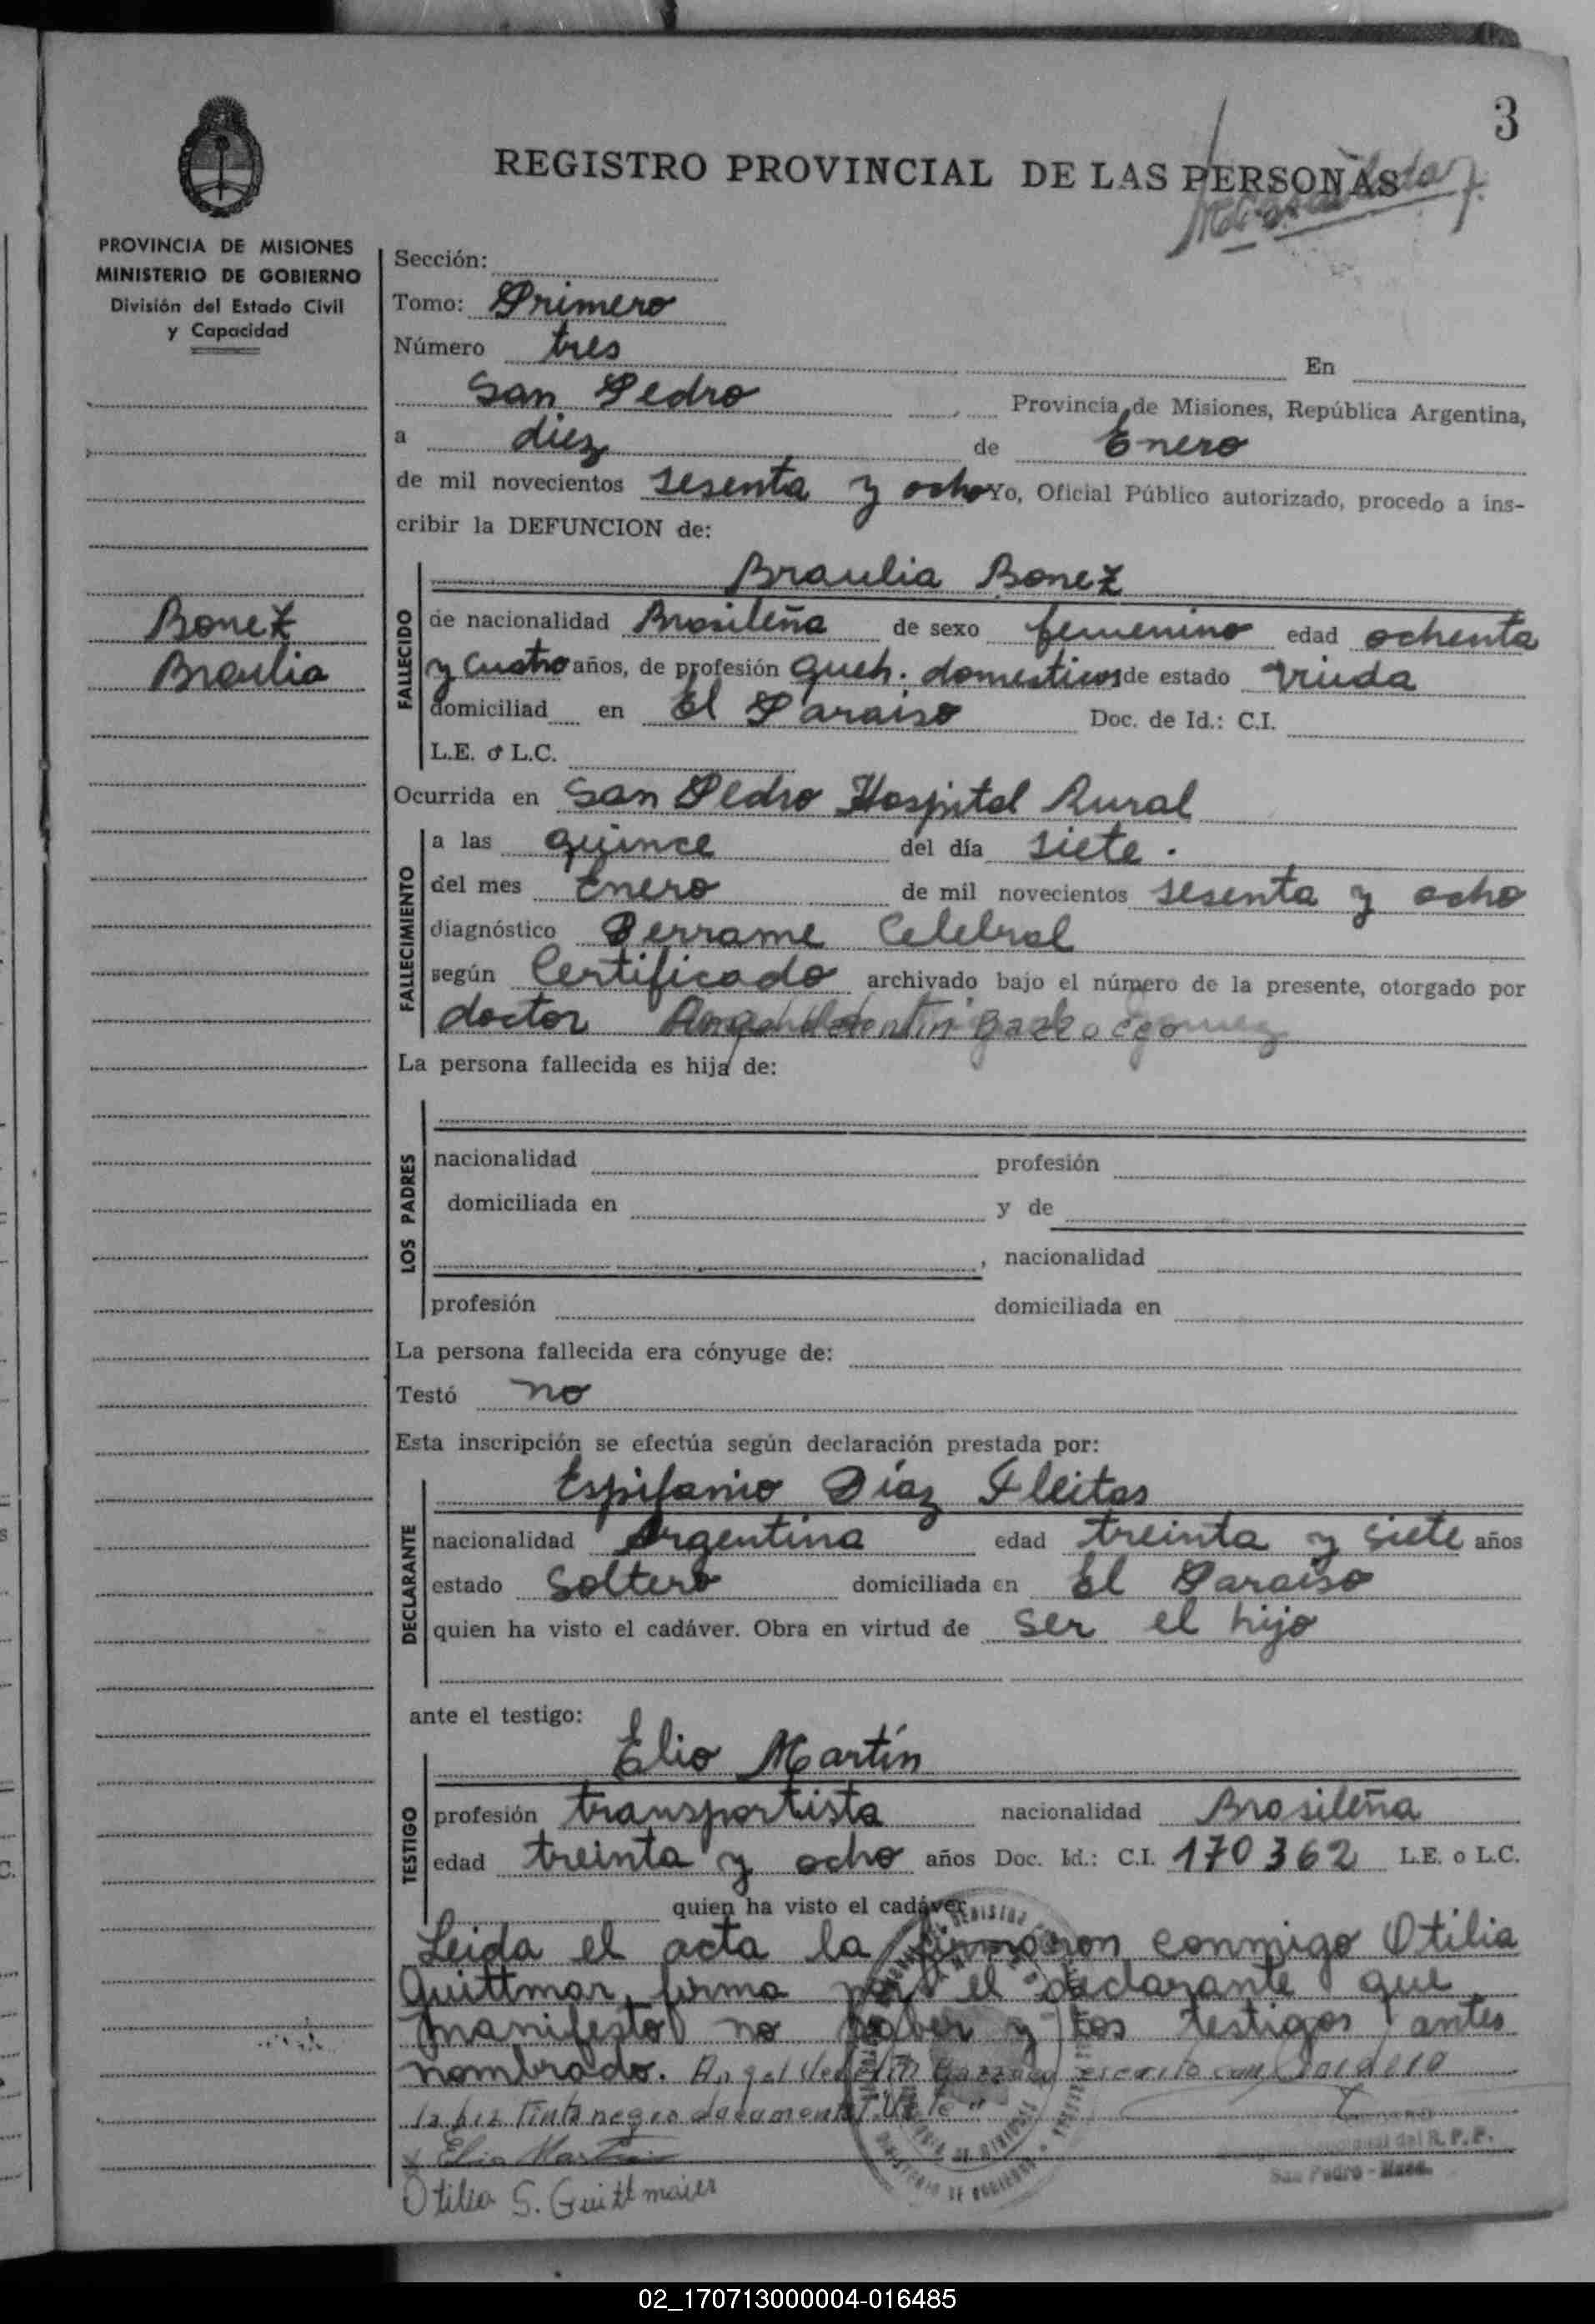 3
REGISTRO PROVINCIAL DE LAS PERSONAS
PROVINCIA DE MISIONES
MINISTERIO DE GOBIERNO
División del Estado Civil
y Capacidad
Bonez
Braulia
Sección:
Tomo: Primero
Número tres En
San Pedro Provincia de Misiones, República Argentina,
a diez de Enero
de mil novecientos sesenta y ocho Yo, Oficial Público autorizado, procedo a ins-
cribir la DEFUNCION de:
FALLECIDO
Braulia Bonez
de nacionalidad Brasileña de sexo femenino edad ochenta
y cuatro años, de profesión queh. domesticos de estado Viuda
domiciliad en El Paraiso Doc. de Id.: C.I.
L.E. ó L.C.
Ocurrida en San Pedro Hospital Rural
FALLECIMIENTO
a las quince del día siete.
del mes Enero de mil novecientos sesenta y ocho
diagnóstico Derrame Celebral
según Certificado archivado bajo el número de la presente, otorgado por
doctor
La persona fallecida es hija de:
LOS PADRES
nacionalidad profesión
domiciliada en y de
, nacionalidad
profesión domiciliada en
La persona fallecida era cónyuge de:
Testó no
Esta inscripción se efectúa según declaración prestada por:
DECLARANTE
Espifanio Díaz Fleitas
nacionalidad Argentina edad treinta y siete años
estado Soltero domiciliada en El Paraiso
quien ha visto el cadáver. Obra en virtud de ser el hijo
ante el testigo:
TESTIGO
Elio Martín
profesión transportista nacionalidad Brasileña
edad treinta y ocho años Doc. Id.: C.I. 170362 L.E. o L.C.
quien ha visto el cadáver
Leida el acta la firmaron conmigo Otilia
Guittmar, firma por el declarante que
manifesto no saber y los testigos antes
nombrado. Angel escrito con
tinta negro documental "Vale"
Elio Martin
del R. P. P.
San Pedro - Mnes.
Otilia S. Guittmaier
02_170713000004-016485